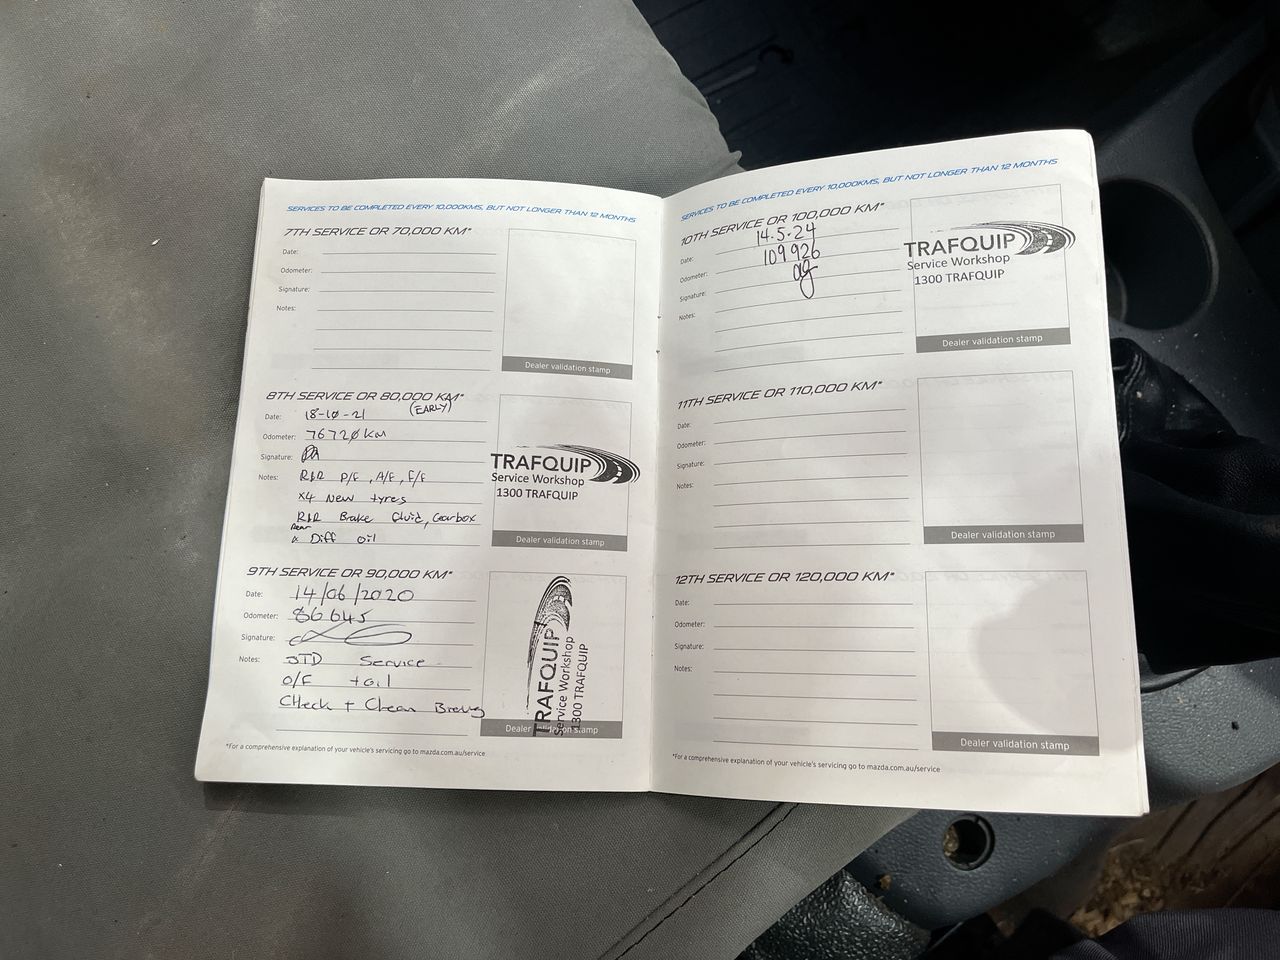 SERVICES TO BE COMPLETED EVERY 10,000KMS, BUT NOT LONGER THAN 12 MONTHS
7TH SERVICE OR 70,000 KM*
Date:
Odometer:
Signature:
Notes:
Dealer validation stamp
8TH SERVICE OR 80,000 KM*
(EARLY)
Date: 18-10-21
Odometer: 76720km
Signature:
Notes: R&R P/F, A/F, F/F
x4 New tyres
R&R Brake fluid, Gearbox
Rear
& Diff oil
TRAFQUIP
Service Workshop
1300 TRAFQUIP
Dealer validation stamp
9TH SERVICE OR 90,000 KM*
Date: 14/06/2020
Odometer: 86645
Signature:
Notes: STD Service
O/F + oil
CHeck + Clean
TRAFQUIP
Service Workshop
1300 TRAFQUIP
Dealer validation stamp
*For a comprehensive explanation of your vehicle's servicing go to mazda.com.au/service
SERVICES TO BE COMPLETED EVERY 10,000KMS, BUT NOT LONGER THAN 12 MONTHS
10TH SERVICE OR 100,000 KM*
Date: 14.5.24
Odometer: 109926
Signature:
Notes:
TRAFQUIP
Service Workshop
1300 TRAFQUIP
Dealer validation stamp
11TH SERVICE OR 110,000 KM*
Date:
Odometer:
Signature:
Notes:
Dealer validation stamp
12TH SERVICE OR 120,000 KM*
Date:
Odometer:
Signature:
Notes:
Dealer validation stamp
*For a comprehensive explanation of your vehicle's servicing go to mazda.com.au/service